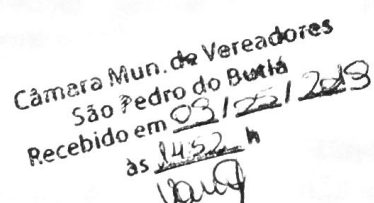 Câmara Mun. de Vereadores
São Pedro do Butiá
Recebido em 09/ / 2019
às 14:52 h